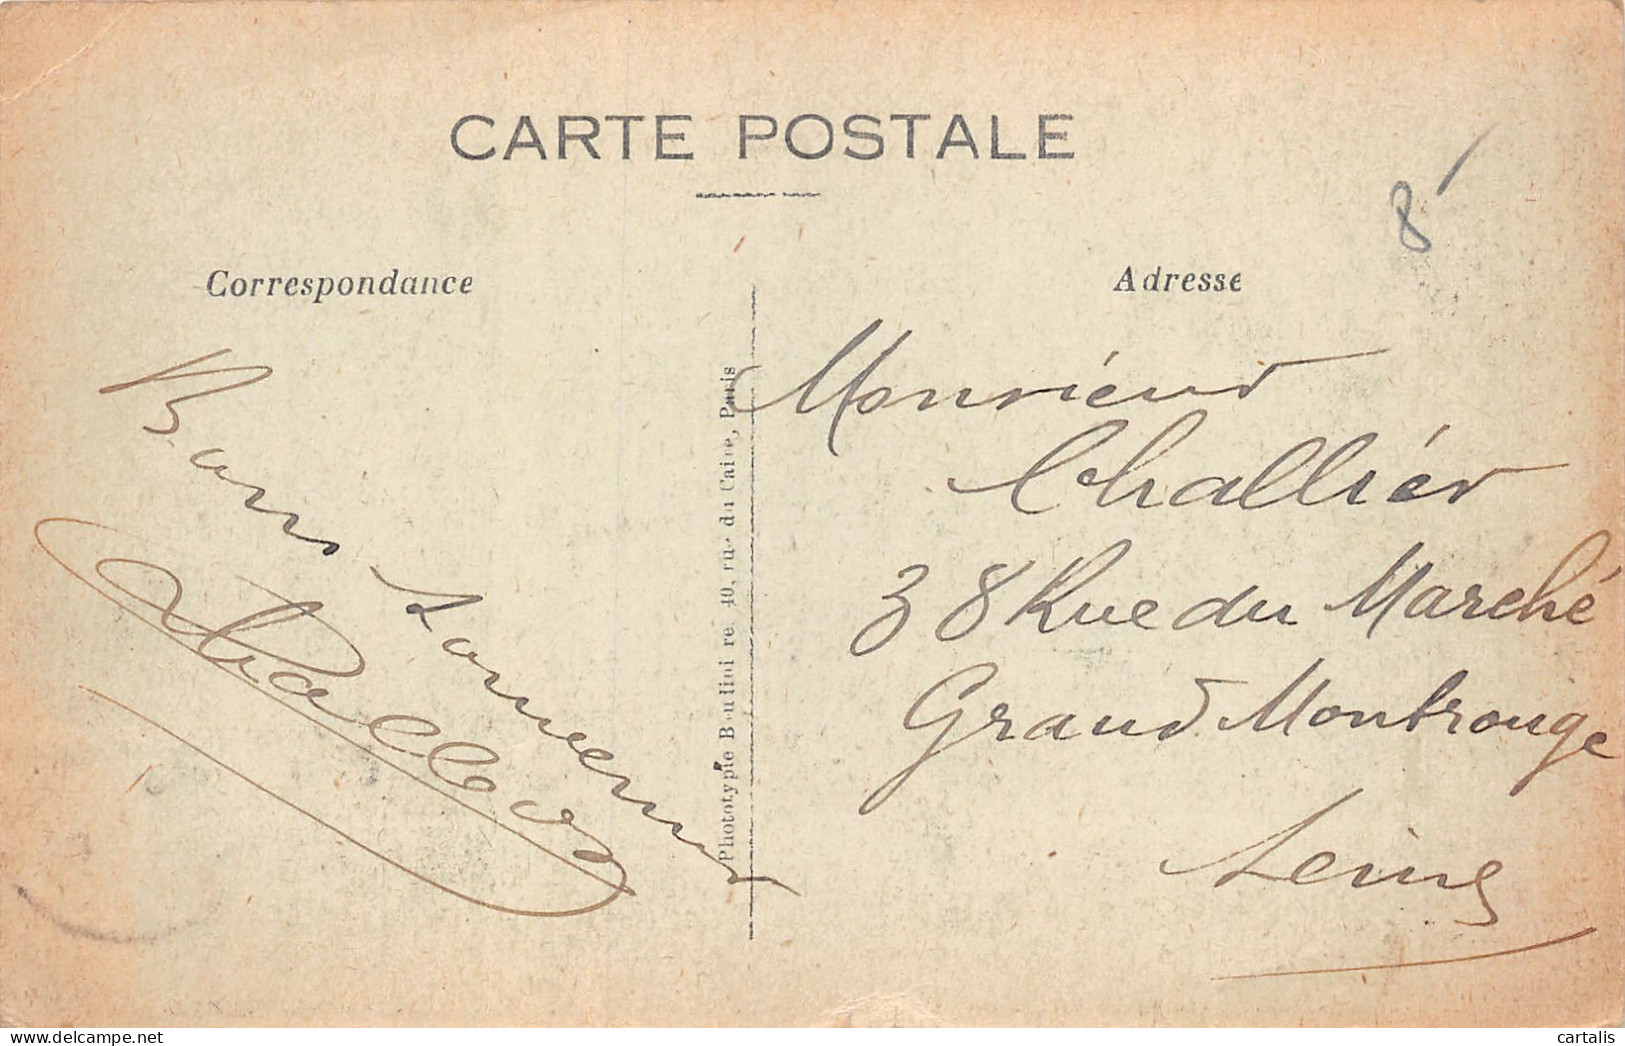 CARTE POSTALE
8
Correspondance
Adresse
Bons souvenirs
Phototypie Baudinière, 40, rue du Caire, Paris
Monsieur
Challier
38 Rue du Marché
Grand Montrouge
Seine
delcampe.net
cartalis